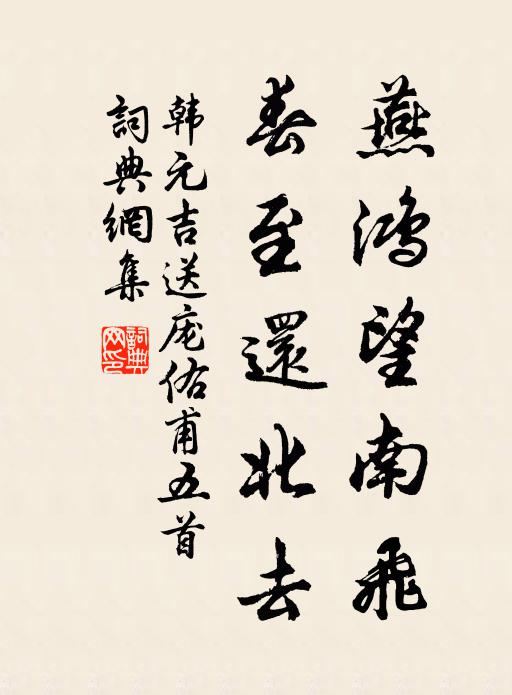 燕鸿望南飛
春至還北去
韩元吉送庞佑甫五首
詞典網集
詞典網印